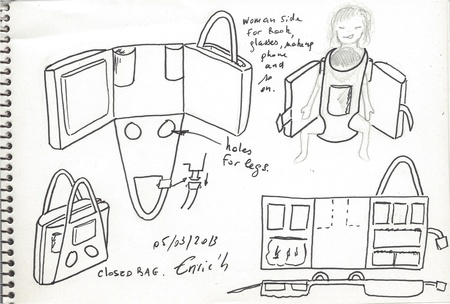 woman side
for book,
glasses, makeup
phone
and
so
on.
holes
for legs.
05/03/2013
CLOSED BAG.